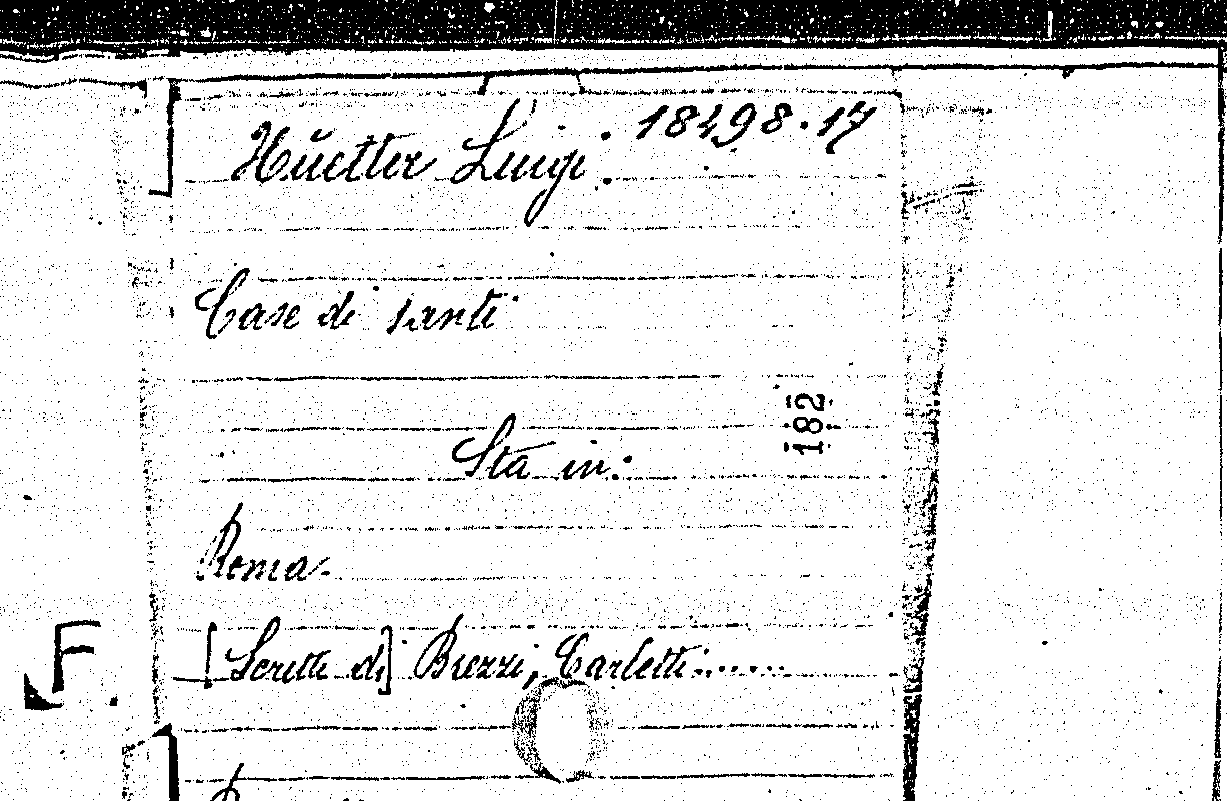 Hüetter Luigi. 18498.17
Case di santi
182
Sta in:
Roma.
[Scritti di] Brezzi, Carletti......
F.